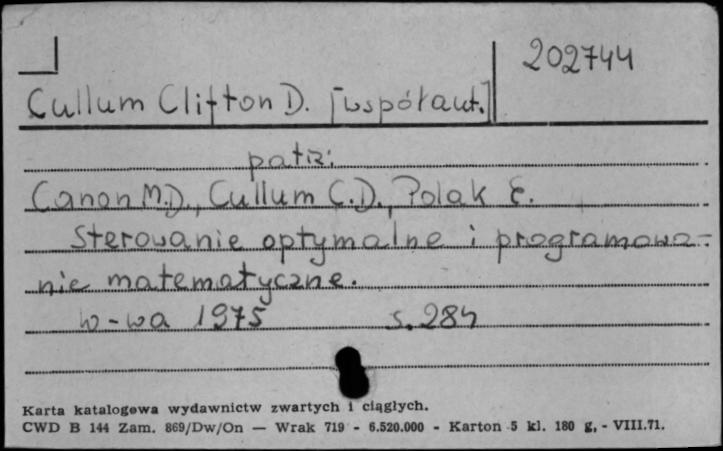 202744
Cullum Clifton D. [współaut.]
patrz:
Canon M.D., Cullum C.D., Polak E.
Sterowanie optymalne i programowa-
nie matematyczne.
W-wa 1975 s. 284
Karta katalogowa wydawnictw zwartych i ciągłych.
CWD B 144 Zam. 869/Dw/On — Wrak 719 - 6.520.000 - Karton 5 kl. 180 g, - VIII.71.